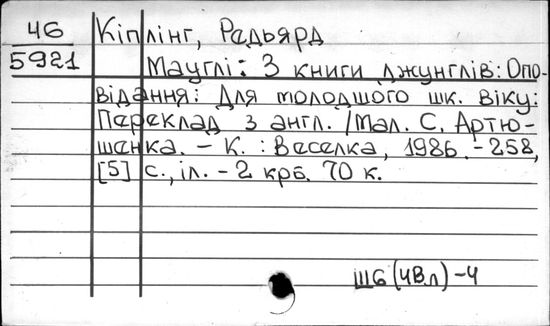 46
5921
Кіплінг, Редьярд
Мауглі: З книги джунглів: Опо-
відання: Для молодшого шк. віку:
Переклад з англ. /Мал. С. Артю-
шенка. – К. : Веселка, 1986. – 258,
[5] с., іл. – 2 крб. 70 к.
Ш6(4Вл)–4